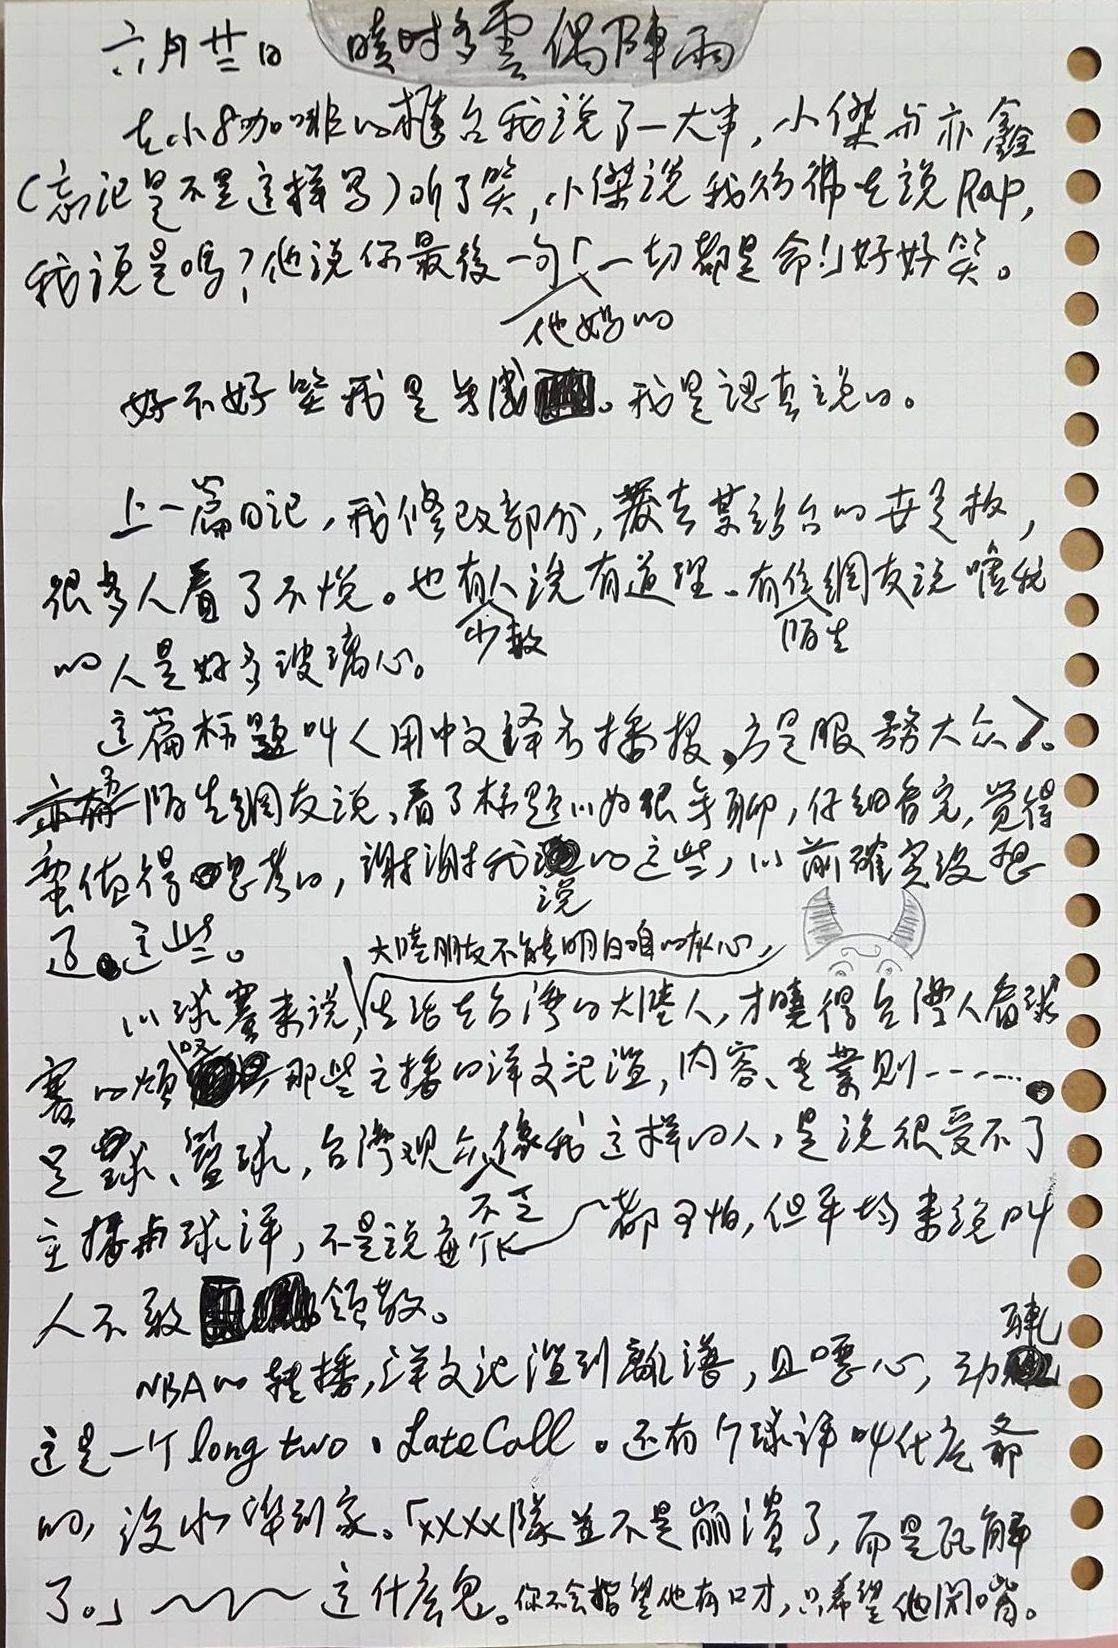 六月廿二日 晴時多雲偶陣雨
在小8咖啡的櫃台我说了一大串，小傑与亦鑫
（忘记是不是這样写）听了笑，小傑说我彷彿在说Rap，
我说是吗？他说你最後一句「一切都是命！」好好笑。
他妈的
好不好笑我是無感。我是認真说的。
上一篇日记，我修改部分，發去某说台的女足板，
很多人看了不悅。也有人说有道理。有位網友说嗆我
少數 陌生
的人是好多玻璃心。
這篇标题叫〈用中文譯名播报，方是服務大众〉。
陌生網友说，看了标题以為很無聊，仔細看完，觉得
蛮值得思考的，謝謝我的这些，以前確实没想
说
过這些。
大陸朋友不能明白咱的痛心，
以球賽来说，生活在台灣的大陸人，才曉得台灣人看球
賽的煩 那些主播的洋文记渣，内容、专業則……。
足球、籃球，台灣观众像我這样的人，是说很受不了
不是
主播与球评，不是说每个都可怕，但平均来说叫
人不敢領教。
NBA的转播，洋文记渣到離譜，且噁心，动輒
這是一个long two，Late Call。还有个球评叫什麼爺
的，没水準到家。「XXXX隊並不是崩潰了，而是瓦解
了。」～～～這什麼鬼。你不会指望他有口才，只希望他閉嘴。